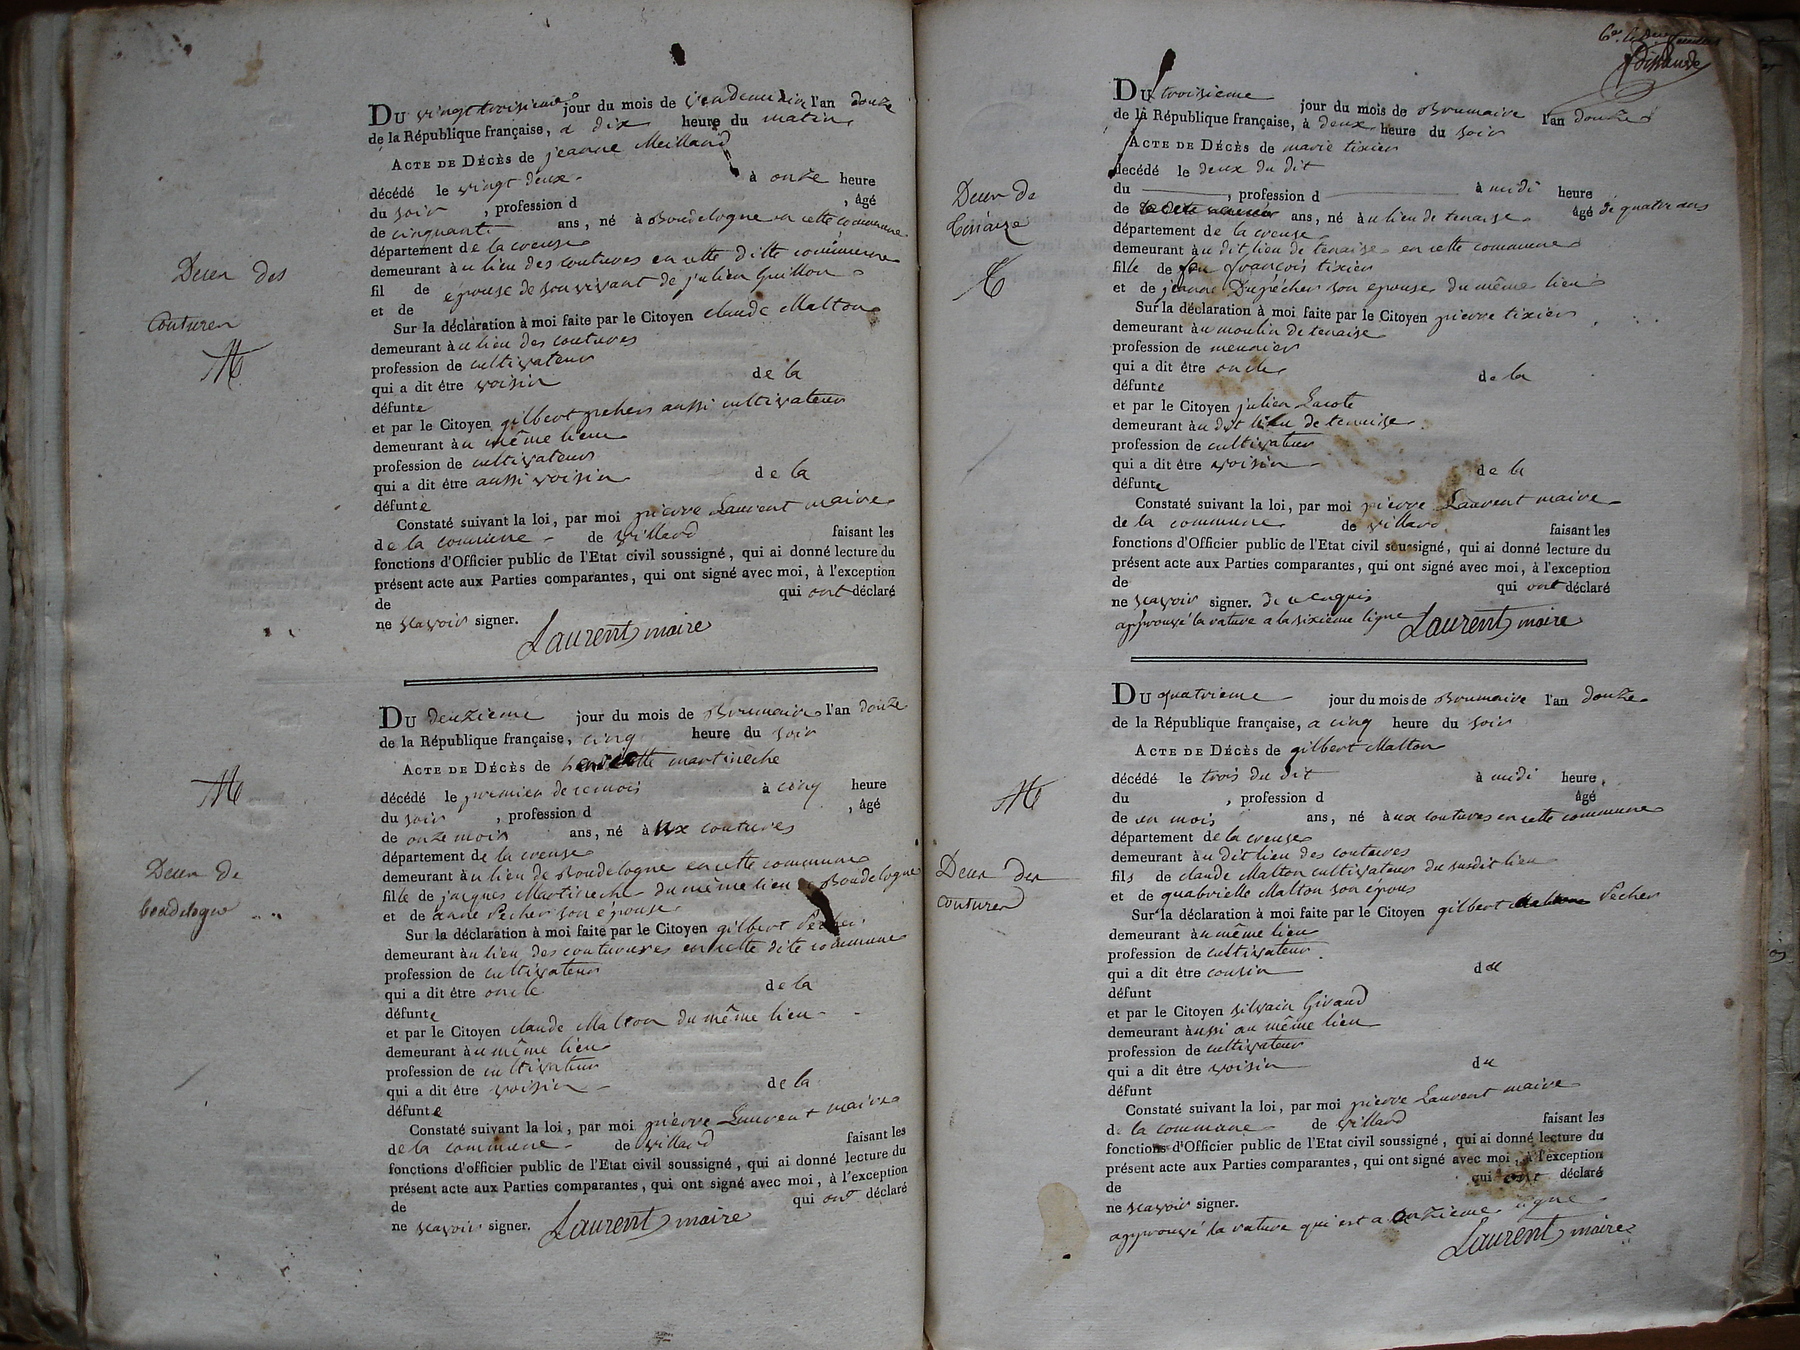 Du vingt troisieme jour du mois de Vendemiaire l'an douze
de la République française, a dix heure du matin
Acte de Décès de jeanne Meilland
décédé le vingt deux à onze heure
du soir, profession d , âgé
de cinquante ans, né à Boudelogne en cette commune
département de la creuse
demeurant au lieu des coutures en cette ditte commune
fil de épouse de son vivant de julien Guillon
et de
Sur la déclaration à moi faite par le Citoyen claude Malton
demeurant au lieu des coutures
profession de cultivateur
qui a dit être voisin de la
défunte
et par le Citoyen gilbert pecher aussi cultivateur
demeurant au même lieu
profession de cultivateur
qui a dit être aussi voisin de la
défunte
Constaté suivant la loi, par moi pierre Laurent maire
de la commune de villard faisant les
fonctions d'Officier public de l'Etat civil soussigné, qui ai donné lecture du
présent acte aux Parties comparantes, qui ont signé avec moi, à l'exception
de qui ont déclaré
ne scavoir signer.
Laurent maire
Deces des
coutures
Du deuzieme jour du mois de Brumaire l'an douze
de la République française, cinq heure du soir
Acte de Décès de martineche
décédé le premier de ce mois à cinq heure
du soir, profession d , âgé
de onze mois ans, né aux coutures
département de la creuse
demeurant au lieu de Boudelogne en cette commune
fille de jacques Martineche du même lieu de Boudelogne
et de anne Pecher son epouse
Sur la déclaration à moi faite par le Citoyen gilbert Pecher
demeurant au lieu des coutures en cette dite commune
profession de cultivateur
qui a dit être oncle de la
défunte
et par le Citoyen claude Malton du même lieu
demeurant au même lieu
profession de cultivateur
qui a dit être voisin de la
défunte
Constaté suivant la loi, par moi pierre Laurent maire
de la commune de villard faisant les
fonctions d'officier public de l'Etat civil soussigné, qui ai donné lecture du
présent acte aux Parties comparantes, qui ont signé avec moi, à l'exception
de qui ont déclaré
ne scavoir signer. Laurent maire
Deces de
boudelogne
Du troisieme jour du mois de Brumaire l'an douze
de la République française, à deux heure du soir
Acte de Décès de marie tixier
décédé le deux du dit
du , profession d à midi heure
de ans, né au lieu de tenaise âgé de quatre ans
département de la creuse
demeurant au dit lieu de tenaise en cette commune
fille de feu françois tixier
et de jeanne Dupécher son epouse du même lieu
Sur la déclaration à moi faite par le Citoyen pierre tixier
demeurant au moulin de tenaise
profession de meunier
qui a dit être oncle de la
défunte
et par le Citoyen julien Lacote
demeurant au dit lieu de tenaise
profession de cultivateur
qui a dit être voisin de la
défunte
Constaté suivant la loi, par moi pierre Laurent maire
de la commune de villard faisant les
fonctions d'Officier public de l'Etat civil soussigné, qui ai donné lecture du
présent acte aux Parties comparantes, qui ont signé avec moi, à l'exception
de qui ont déclaré
ne scavoir signer. de ce enquis
approuvé la rature a la sixieme ligne Laurent maire
Deces de
Tenaize
Du quatrieme jour du mois de Brumaire l'an douze
de la République française, a cinq heure du soir
Acte de Décès de gilbert Malton
décédé le trois du dit à midi heure
du , profession d âgé
de un mois ans, né aux coutures en cette commune
département de la creuse
demeurant au dit lieu des coutures
fils de claude Malton cultivateur du susdit lieu
et de quabrielle Malton son epous
Sur la déclaration à moi faite par le Citoyen gilbert Pecher
demeurant au même lieu
profession de cultivateur
qui a dit être cousin du
défunt
et par le Citoyen silvain Giraud
demeurant aussi au même lieu
profession de cultivateur
qui a dit être voisin du
défunt
Constaté suivant la loi, par moi pierre Laurent maire
de la commune de villard faisant les
fonctions d'Officier public de l'Etat civil soussigné, qui ai donné lecture du
présent acte aux Parties comparantes, qui ont signé avec moi, à l'exception
de qui ont déclaré
ne scavoir signer.
approuvé la rature qui est a onzieme ligne
Laurent maire
Deces des
coutures